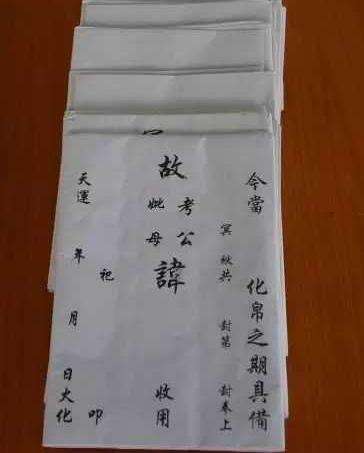 今當 化帛之期具備
冥 秋共 封第 封奉上
故 考公 妣母 諱 收用
祀 叩
天運 年 月 日火化